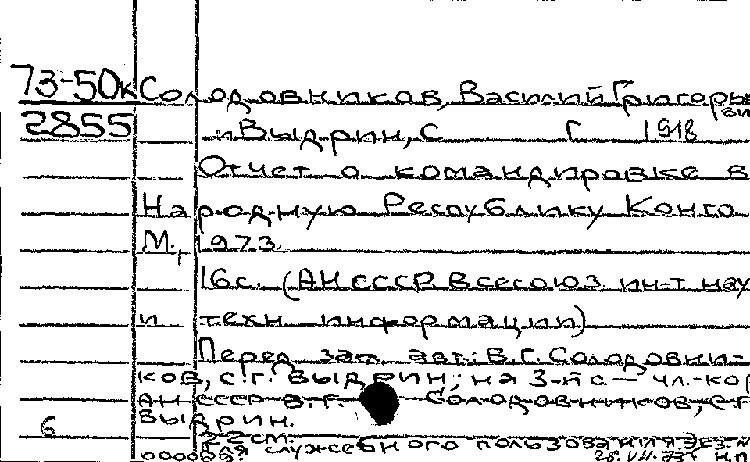 73-50к Солодовников, Василий Григорье
вич
2855 и Выдрин, С Г 1918
Отчет о командировке в
Народную Республику Конго
М., 1973.
16с. (АН СССР Всесоюз. ин-т науч
и техн информации)
Перед загл. авт.: В.Г. Солодовни-
ков, С.Г. Выдрин; на 3-й с — чл.-кор
АН СССР В.Г. Солодовников, С.Г
6 Выдрин.
22см.
служебного пользования